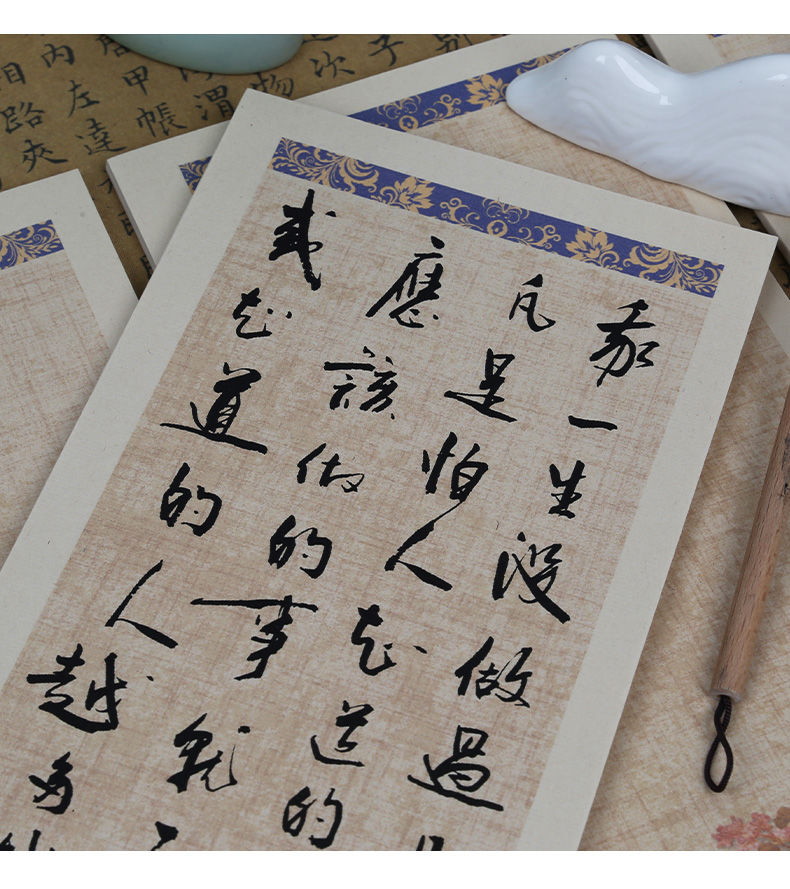 我一生没做過
凡是怕人知道的
應該做的事就
我知道的人越多
子
次
物
渭
甲帳
內左達
相路夾